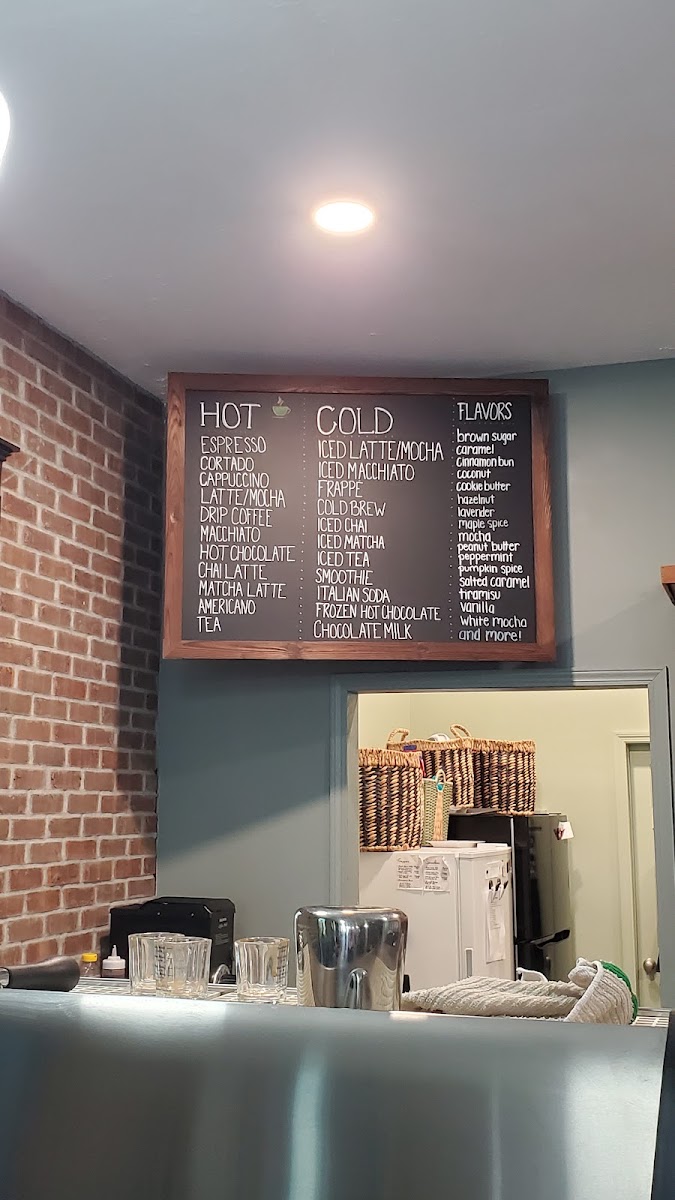 HOT
ESPRESSO
CORTADO
CAPPUCINO
LATTE/MOCHA
DRIP COFFEE
MACCHIATO
HOT CHOCOLATE
CHAI LATTE
MATCHA LATTE
AMERICANO
TEA
COLD
ICED LATTE/MOCHA
ICED MACCHIATO
FRAPPE
COLD BREW
ICED CHAI
ICED MATCHA
ICED TEA
SMOOTHIE
ITALIAN SODA
FROZEN HOT CHOCOLATE
CHOCOLATE MILK
FLAVORS
brown sugar
caramel
cinnamon bun
coconut
cookie butter
hazelnut
lavender
maple spice
mocha
peanut butter
peppermint
pumpkin spice
salted caramel
tiramisu
vanilla
white mocha
and more!